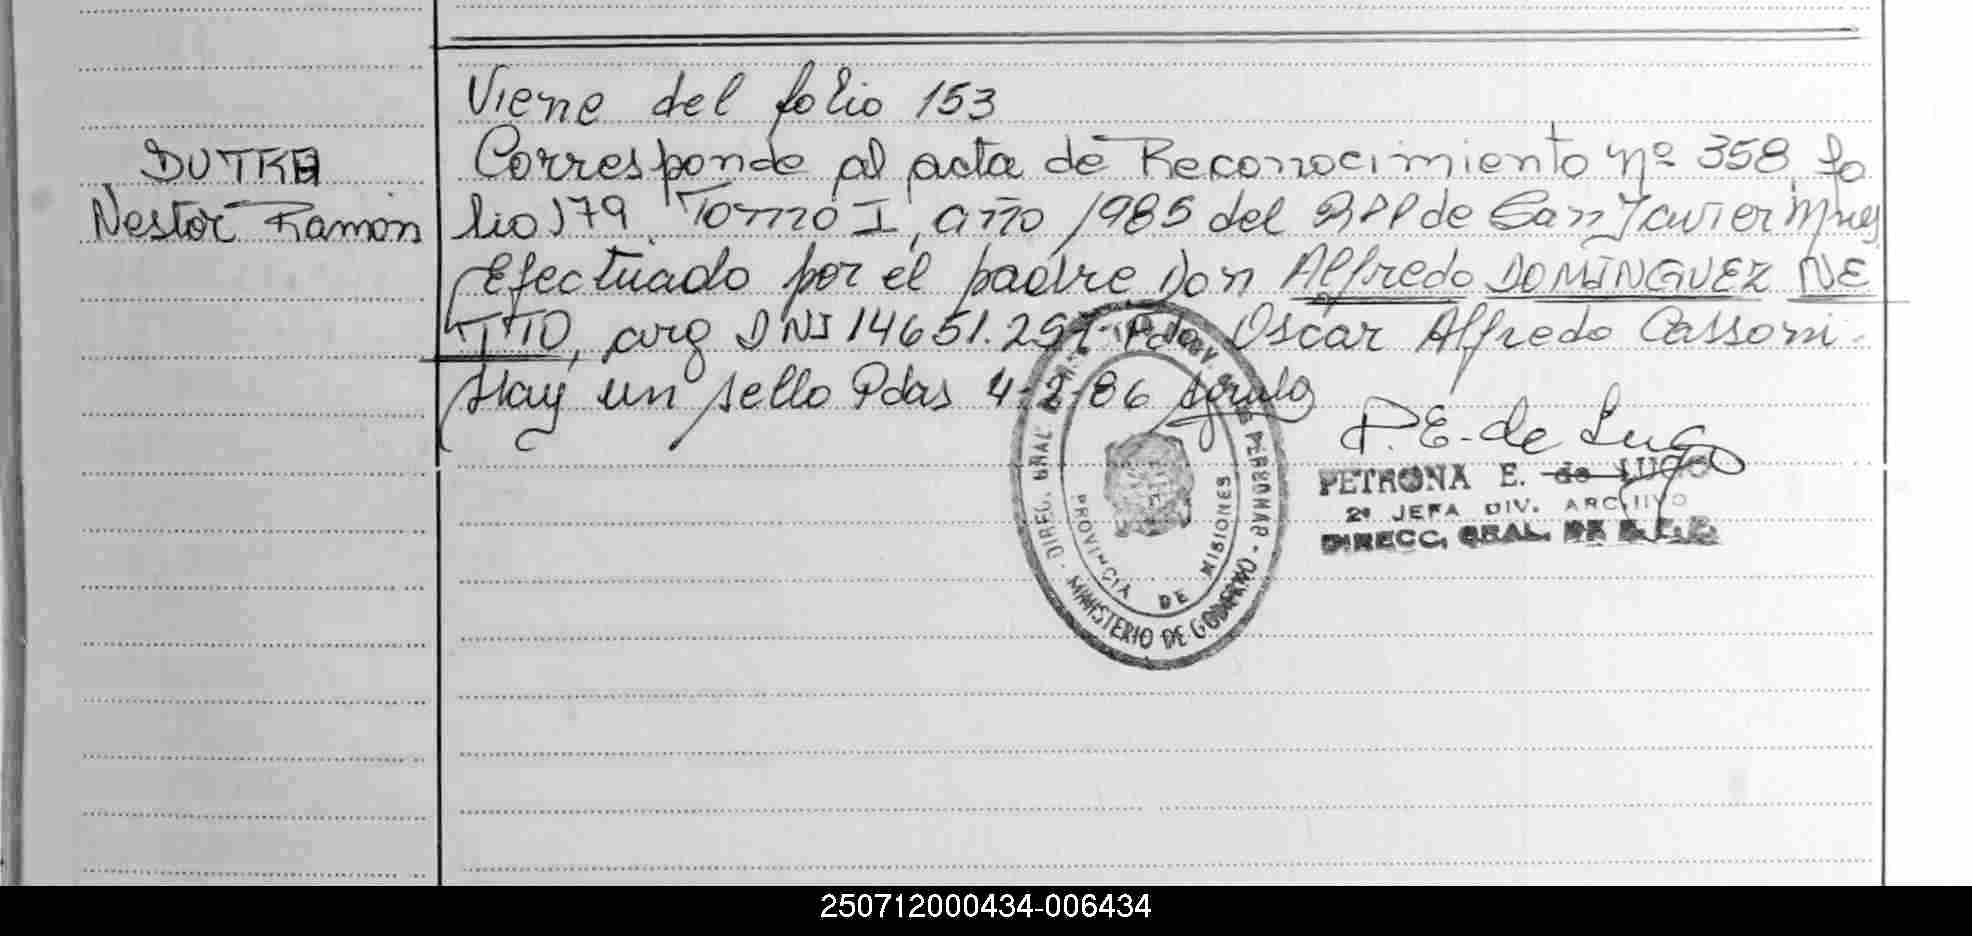 Viene del folio 153
DUTRA
Nestor Ramón
Corresponde al acta de Reconocimiento nº 358, fo
lio 179, Tomo I, año 1985 del RPP de San Javier Mnes
Efectuado por el padre Don Alfredo DOMINGUEZ NE
TTO, arg DNI 14651.297. Fdo Oscar Alfredo Cassoni.
Hay un sello Pdas 4-2-86
P.E. de Lugo
PETRONA E. de LUGO
2º JEFA DIV. ARCHIVO
DIRECC. GRAL. DE
DIREC. GRAL. PERSONAS
PROVINCIA DE MISIONES
MINISTERIO DE GOBIERNO
250712000434-006434